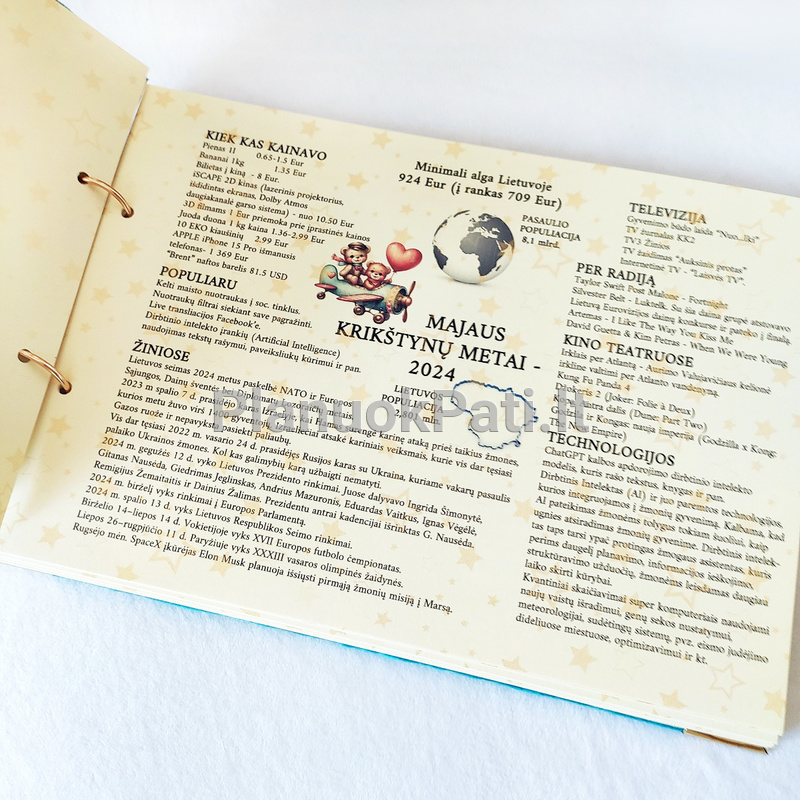 KIEK KAS KAINAVO
Pienas 1l 0.65-1.5 Eur
Bananai 1kg 1.35 Eur
Bilietas į kiną - 8 Eur.
iSCAPE 2D kinas (lazerinis projektorius,
išdidintas ekranas, Dolby Atmos
daugiakanalė garso sistema) - nuo 10.50 Eur
3D filmams 1 Eur priemoka prie įprastinės kainos
Juoda duona 1 kg kaina 1.36-2.99 Eur
10 EKO kiaušinių 2.99 Eur
APPLE iPhone 15 Pro išmanusis
telefonas- 1 369 Eur
"Brent" naftos barelis 81.5 USD
POPULIARU
Kelti maisto nuotraukas į soc. tinklus.
Nuotraukų filtrai siekiant save pagražinti.
Live transliacijos Facebook'e.
Dirbtinio intelekto įrankių (Artificial Intelligence)
naudojimas tekstų rašymui, paveiksliukų kūrimui ir pan.
ŽINIOSE
Lietuvos seimas 2024 metus paskelbė NATO ir Europos
Sąjungos, Dainų šventės bei metais.
2023 m spalio 7 d. prasidėjo karinę ataką prieš taikius žmones,
kurios metu žuvo virš 1 Izraeliečiai atsakė kariniais veiksmais, kurie vis dar tęsiasi
Gazos ruože ir nepavyksta pasiekti paliaubų.
Vis dar tęsiasi 2022 m. vasario 24 d. prasidėjęs Rusijos karas su Ukraina, kuriame vakarų pasaulis
palaiko Ukrainos žmones. Kol kas galimybių karą užbaigti nematyti.
2024 m. gegužės 12 d. vyko Lietuvos Prezidento rinkimai. Juose dalyvavo Ingrida Šimonytė,
Gitanas Nausėda, Giedrimas Jeglinskas, Andrius Mazuronis, Eduardas Vaitkus, Ignas Vėgėlė,
Remigijus Žemaitaitis ir Dainius Žalimas. Prezidentu antrai kadencijai išrinktas G. Nausėda.
2024 m. birželį vyks rinkimai į Europos Parlamentą.
2024 m. spalio 13 d. vyks Lietuvos Respublikos Seimo rinkimai.
Birželio 14-liepos 14 d. Vokietijoje vyks XVII Europos futbolo čempionatas.
Liepos 26-rugpjūčio 11 d. Paryžiuje vyks XXXIII vasaros olimpinės žaidynės.
Rugsėjo mėn. SpaceX įkūrėjas Elon Musk planuoja išsiųsti pirmąją žmonių misiją į Marsą.
Minimali alga Lietuvoje
924 Eur (į rankas 709 Eur)
PASAULIO
POPULIACIJA
8,1 mlrd.
MAJAUS
KRIKŠTYNŲ METAI -
2024
LIETUVOS
POPULIACIJA
2,801 mln.
TELEVIZIJA
Gyvenimo būdo laida "Nuo...Iki"
TV žurnalas KK2
TV3 Žinios
TV žaidimas "Auksinis protas"
Internetinė TV - "Laisvės TV".
PER RADIJĄ
Taylor Swift Post Malone - Fortnight
Silvester Belt - Luktelk. Su šia daina grupė atstovavo
Lietuvą Eurovizijos dainų konkurse ir pateko į finalą.
Artemas - I Like The Way You Kiss Me
David Guetta & Kim Petras - When We Were Young
KINO TEATRUOSE
Irklais per Atlantą - Aurimo Valujavičiaus kelionė
irkline valtimi per Atlanto vandenyną.
Kung Fu Panda 4
Džokeris 2 (Joker: Folie à Deux)
Kopa: antra dalis (Dune: Part Two)
Godzila ir Kongas: nauja imperija (Godzilla x Kong:
The New Empire)
TECHNOLOGIJOS
ChatGPT kalbos apdorojimo dirbtinio intelekto
modelis, kuris rašo tekstus, knygas ir pan.
Dirbtinis Intelektas (AI) ir juo paremtos technologijos,
kurios integruojamos į žmonių gyvenimą. Kalbama, kad
AI pateikimas žmonėms tolygus tokiam šuoliui, kaip
ugnies atsiradimas žmonių gyvenime. Dirbtinis intelek-
tas taps tarsi ypač protingas žmogaus asistentas, kuris
perims daugelį planavimo, informacijos ieškojimo,
struktūravimo užduočių, žmonėms leisdamas daugiau
laiko skirti kūrybai.
Kvantiniai skaičiavimai super kompiuteriais naudojami
naujų vaistų išradimui, genų sekos nustatymui,
meteorologijai, sudėtingų sistemų, pvz. eismo judėjimo
dideliuose miestuose, optimizavimui ir kt.
PlanuokPati.lt